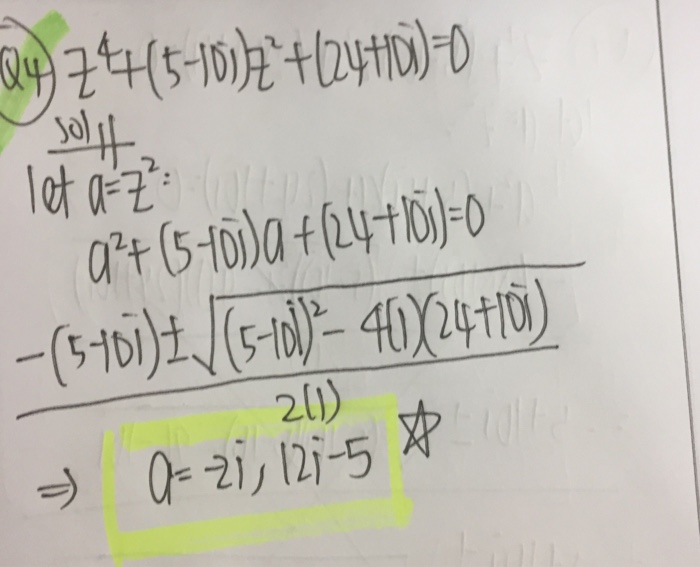 Q4) z⁴+(5-10i)z²+(24+10i)=0
sol
let a=z²:
a²+(5-10i)a+(24+10i)=0
-(5-10i)±√(5-10i)²-4(1)(24+10i)
2(1)
⇒ a=-2i, 12i-5 ☆